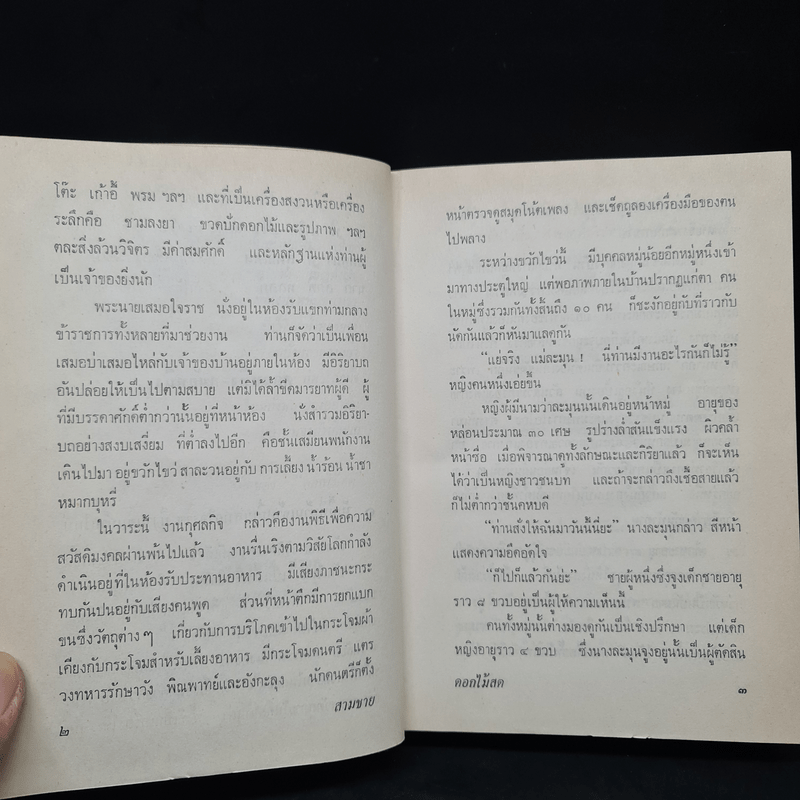 โต๊ะ เก้าอี้ พรม ฯลฯ และที่เป็นเครื่องสงวนหรือเครื่อง
ระลึกคือ ชามลงยา ขวดปักดอกไม้และรูปภาพ ฯลฯ
ตละสิ่งล้วนวิจิตร มีค่าสมศักดิ์ และหลักฐานแห่งท่านผู้
เป็นเจ้าของยิ่งนัก
พระนายเสมอใจราช นั่งอยู่ในห้องรับแขกท่ามกลาง
ข้าราชการทั้งหลายที่มาช่วยงาน ท่านก็จัดว่าเป็นเพื่อน
เสมอบ่าเสมอไหล่กับเจ้าของบ้านอยู่ภายในห้อง มีอิริยาบถ
อันปล่อยให้เป็นไปตามสบาย แต่มิได้ล้ำขีดมารยาทผู้ดี ผู้
ที่มีบรรดาศักดิ์ต่ำกว่านั้นอยู่ที่หน้าห้อง นั่งสำรวมอิริยา-
บถอย่างสงบเสงี่ยม ที่ต่ำลงไปอีก คือชั้นเสมียนพนักงาน
เดินไปมา อยู่ขวักไขว่ สาละวนอยู่กับ การเลี้ยง น้ำร้อน น้ำชา
หมากบุหรี่
ในวาระนี้ งานกุศลกิจ กล่าวคืองานพิธีเพื่อความ
สวัสดิมงคลผ่านพ้นไปแล้ว งานรื่นเริงตามวิสัยโลกกำลัง
ดำเนินอยู่ที่ในห้องรับประทานอาหาร มีเสียงภาชนะกระ
ทบกันปนอยู่กับเสียงคนพูด ส่วนที่หน้าตึกมีการยกแบก
ขนซึ่งวัตถุต่าง ๆ เกี่ยวกับการบริโภคเข้าไปในกระโจมผ้า
เคียงกับกระโจมสำหรับเลี้ยงอาหาร มีกระโจมดนตรี แตร
วงทหารรักษาวัง พิณพาทย์และอังกะลุง นักดนตรีก็ตั้ง
สามชาย
๒
หน้าตรวจดูสมุดโน้ตเพลง และเช็ดถูลองเครื่องมือของตน
ไปพลาง
ระหว่างขวักไขว่นี้ มีบุคคลหมู่น้อยอีกหมู่หนึ่งเข้า
มาทางประตูใหญ่ แต่พอภาพภายในบ้านปรากฏแก่ตา คน
ในหมู่ซึ่งรวมกันทั้งสิ้นถึง ๑๐ คน ก็ชะงักอยู่กับที่ราวกับ
นัดกันแล้วก็หันมาแลดูกัน
“แย่จริง แม่ละมุน ! นี่ท่านมีงานอะไรกันก็ไม่รู้”
หญิงคนหนึ่งเอ่ยขึ้น
หญิงผู้มีนามว่าละมุนนั้นเดินอยู่หน้าหมู่ อายุของ
หล่อนประมาณ ๓๐ เศษ รูปร่างล่ำสันแข็งแรง ผิวคล้ำ
หน้าซื่อ เมื่อพิจารณาดูทั้งลักษณะและกิริยาแล้ว ก็จะเห็น
ได้ว่าเป็นหญิงชาวชนบท และถ้าจะกล่าวถึงเชื้อสายแล้ว
ก็ไม่ต่ำกว่าชั้นคหบดี
“ท่านสั่งให้ฉันมาวันนี้นี่ยะ” นางละมุนกล่าว สีหน้า
แสดงความอึดอัดใจ
“ก็ไปก็แล้วกันย่ะ” ชายผู้หนึ่งซึ่งจูงเด็กชายอายุ
ราว ๘ ขวบอยู่เป็นผู้ให้ความเห็นนี้
คนทั้งหมู่นั้นต่างมองดูกันเป็นเชิงปรึกษา แต่เด็ก
หญิงอายุราว ๔ ขวบ ซึ่งนางละมุนจูงอยู่นั้นเป็นผู้ตัดสิน
ดอกไม้สด
๓